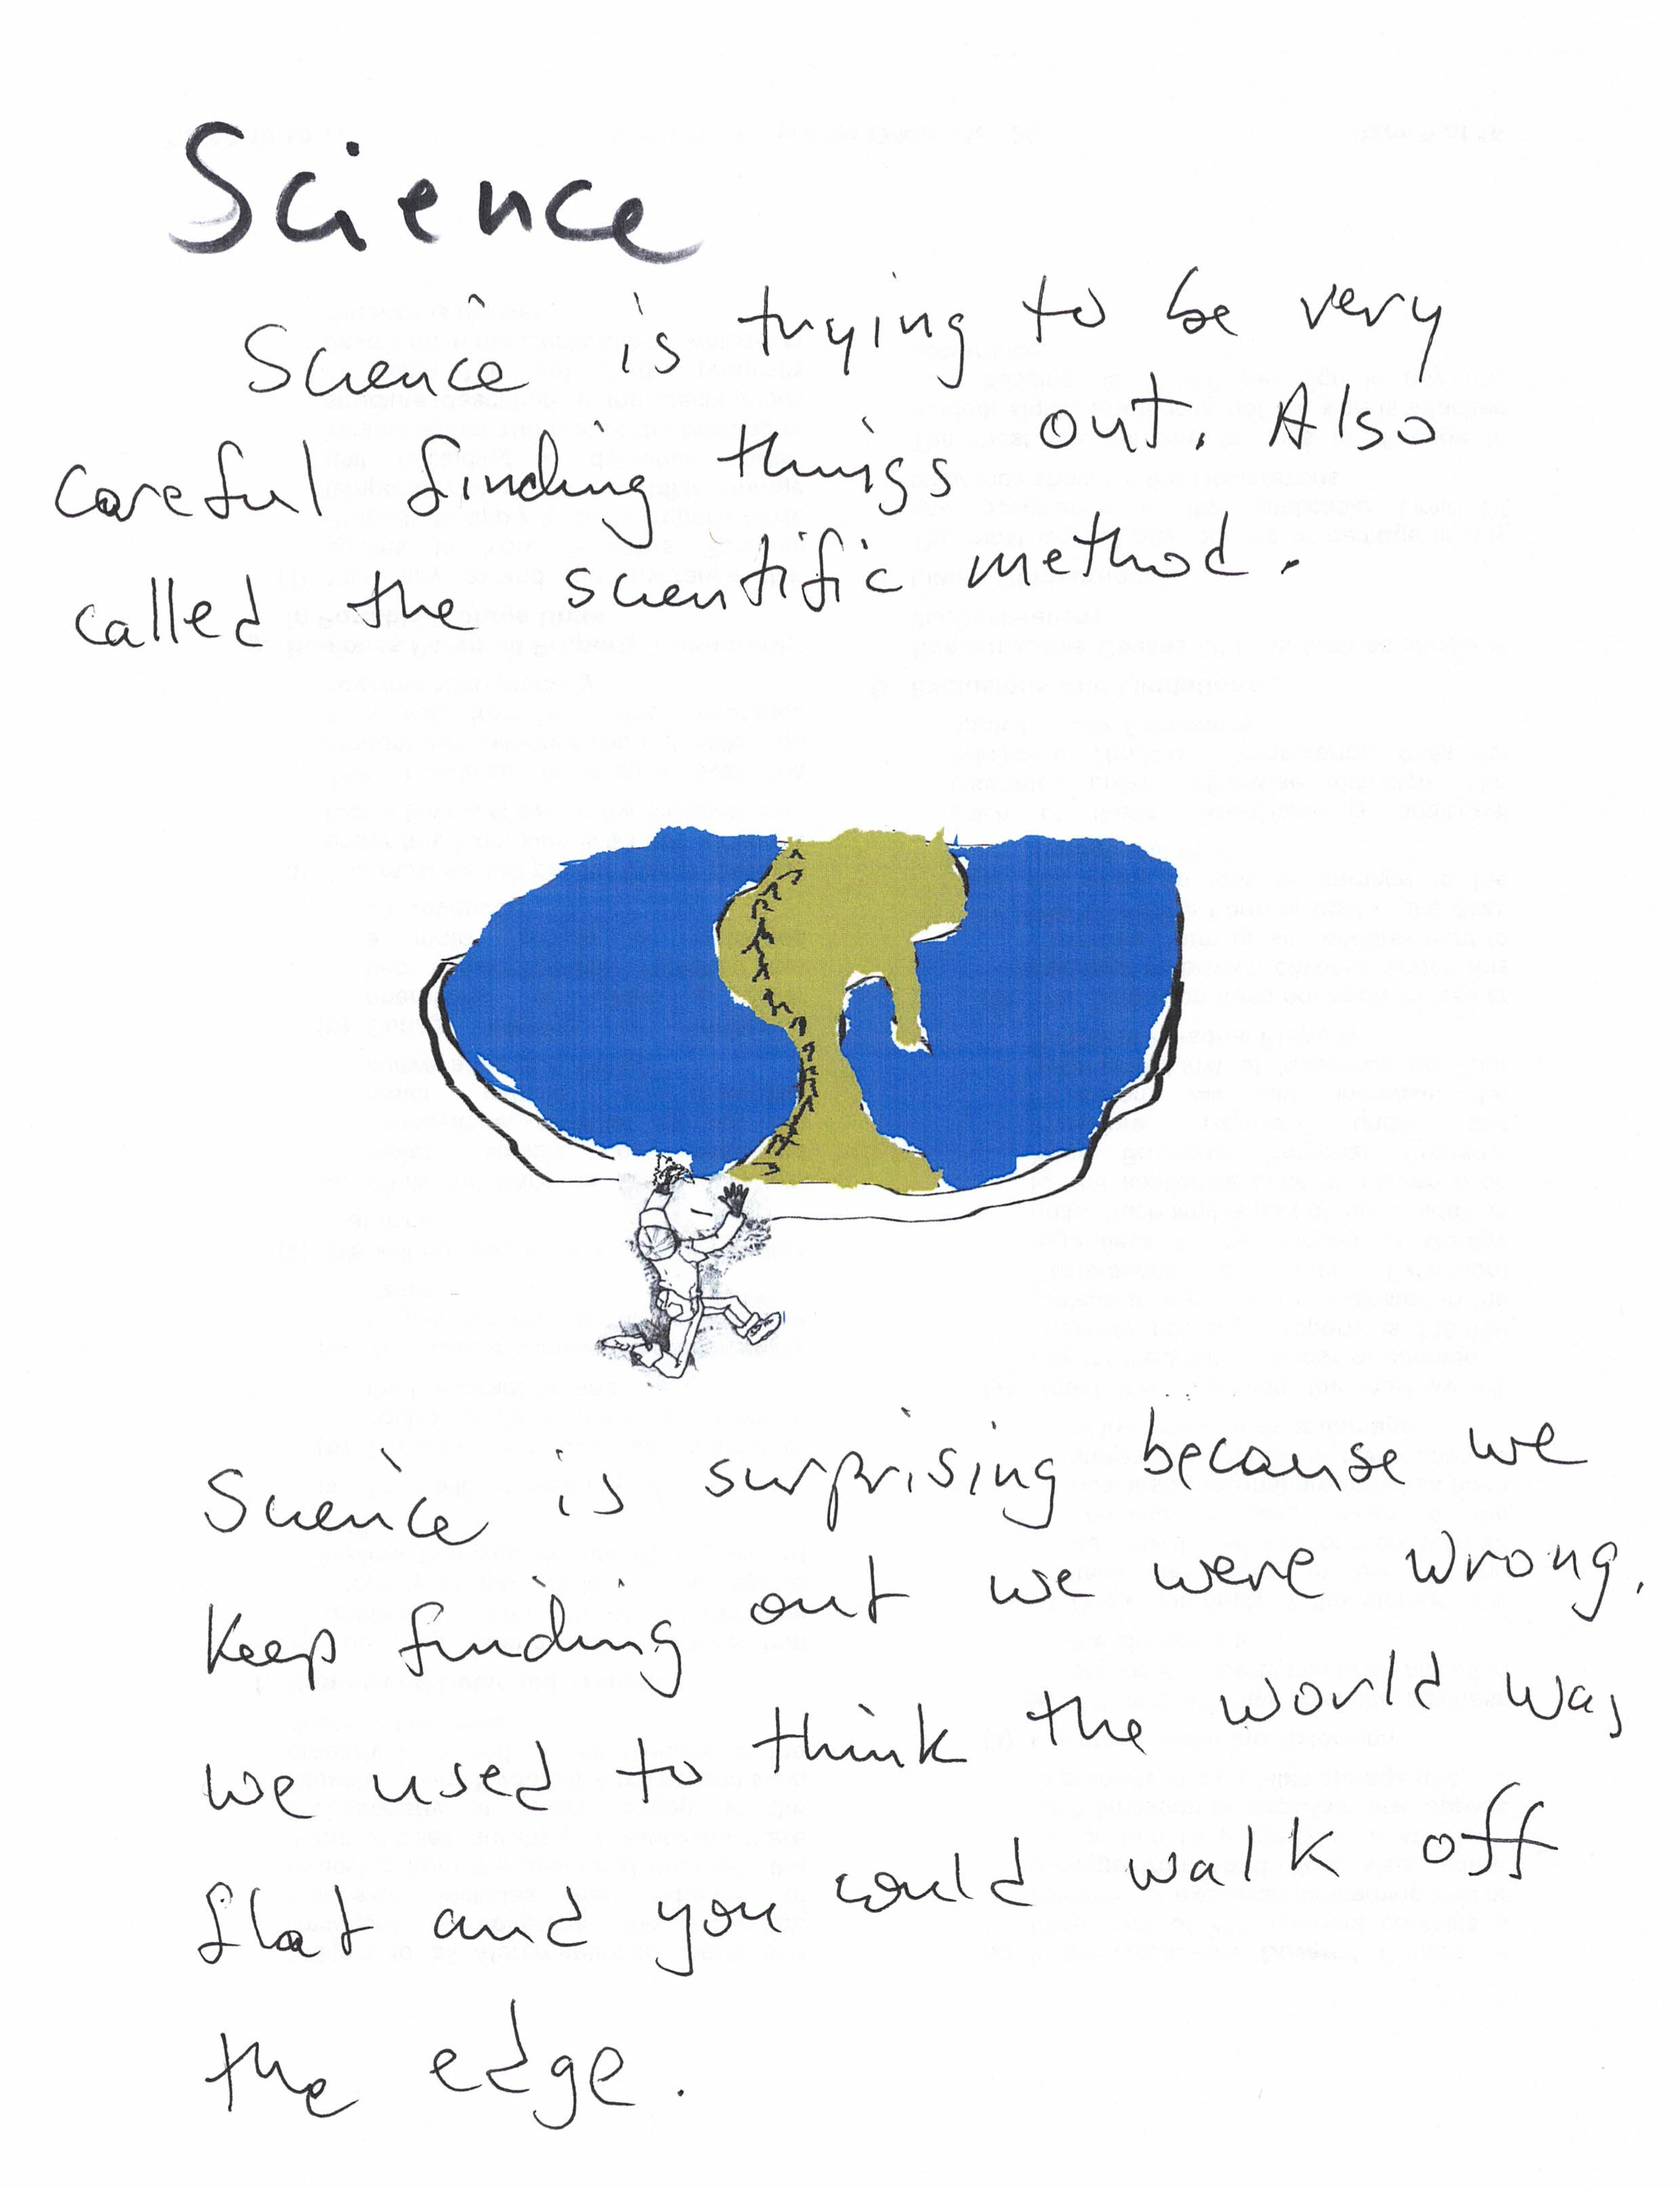 Science
Science is trying to be very
careful finding things out. Also
called the scientific method.
Science is surprising because we
keep finding out we were wrong.
we used to think the world was
flat and you could walk off
the edge.